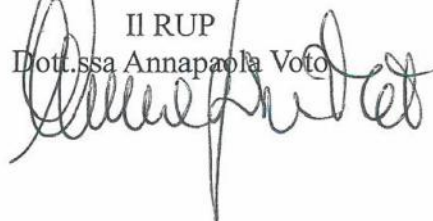 Il RUP
Dott.ssa Annapaola Voto